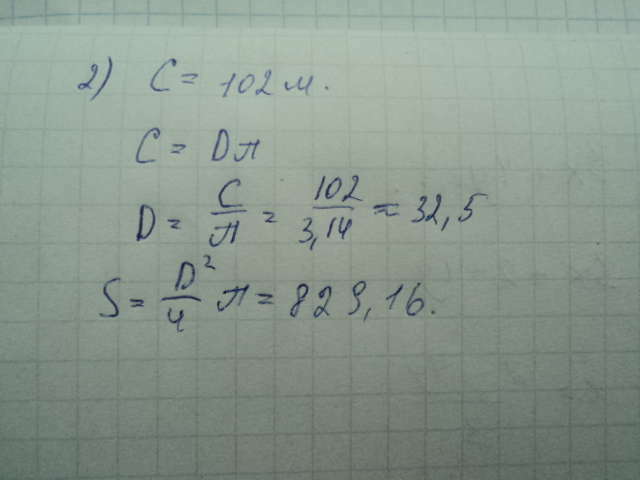 2) C = 102 м.
C = Dπ
D = C/π = 102/3,14 = 32,5
S = D²/4 π = 829,16.